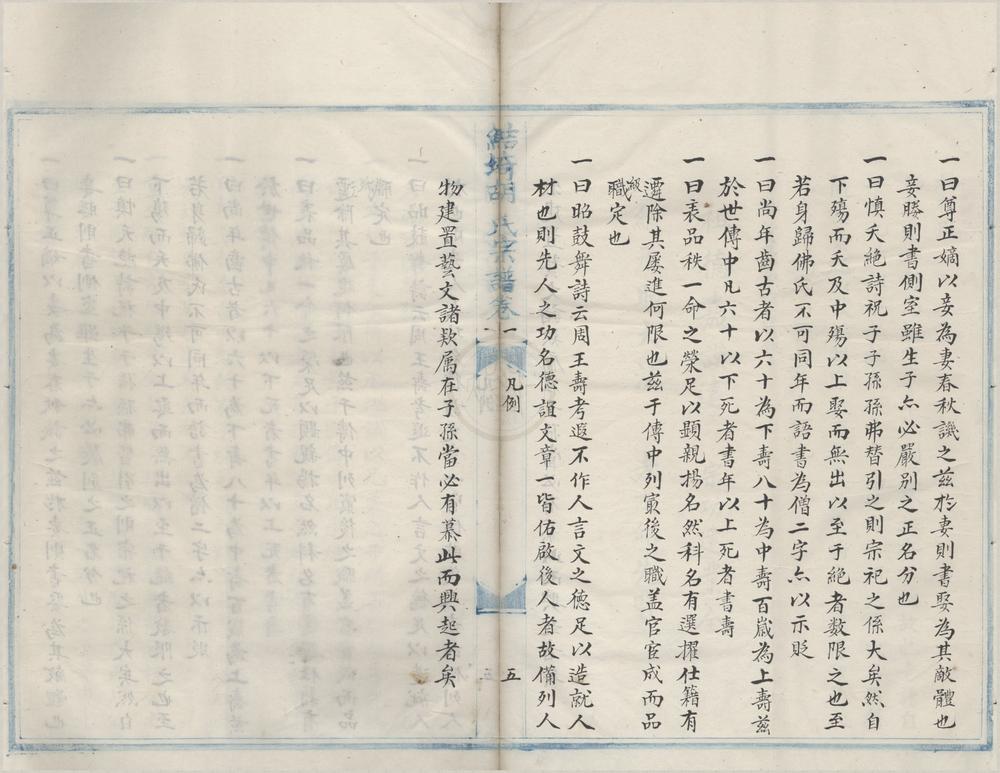 一曰尊正嫡以妾為妻春秋譏之兹於妻則書娶為其敵體也
妾媵則書側室雖生子亦必嚴别之正名分也
一曰慎夭絶詩祝子子孫孫弗替引之則宗祀之係大矣然自
下殤而夭及中殤以上娶而無出以至于絶者数限之也至
若身歸佛氏不可同年而語書為僧二字亦以示貶
一曰尚年齒古者以六十為下壽八十為中壽百歳為上壽兹
於世傳中凡六十以下死者書年以上死者書壽
一曰表品秩一命之榮足以顯親揚名然科名有選擢仕籍有
遷除其屡進何限也兹于傳中列寔後之職盖官宦成而品
級
職定也
一曰昭鼓舞詩云周王壽考遐不作人言文之德足以造就人
材也則先人之功名德誼文章一皆佑啟後人者故備列人
鮚埼胡氏宗譜卷一
凡例
五
物建置藝文諸欵属在子孫當必有慕此而興起者矣